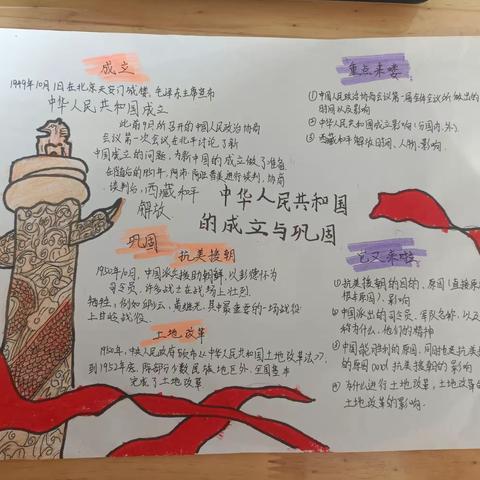 成立
1949年10月1日在北京天安门城楼,毛泽东主席宣布
中华人民共和国成立
此前9月所召开的中国人民政治协商
会议第一次会议在北平讨论了新
中国成立的问题,为新中国的成立做了准备
在随后的1951年,
进行谈判,协商
谈判后,西藏和平
解放
中华人民共和国
的成立与巩固
巩固
抗美援朝
1950年10月,中国派兵援助朝鲜,以彭德怀为
司令员,许多战士在战场上壮烈
牺牲,例如邱少云,黄继光,其中最重要的一场战役
上甘岭战役。
土地改革
1950年,中央人民政府颁布《中华人民共和国土地改革法》,
到1952年底,除部分少数民族地区外,全国基本
完成了土地改革
重点来喽
①中国人民政治协商会议第一届全体会议所做出的
时间以及影响
②中华人民共和国成立影响(分国内、外)。
③西藏和平解放时间、人物、影响.
它又来啦
①抗美援朝的目的、原因(直接原
根本原因)、影响
②中国派出的司令员、军队名称,以及
称为什么,他们的精神
③中国能胜利的原因,同时也是抗美援
的原因and 抗美援朝的影响
④为什么进行土地改革,土地改革的
土地改革的影响.